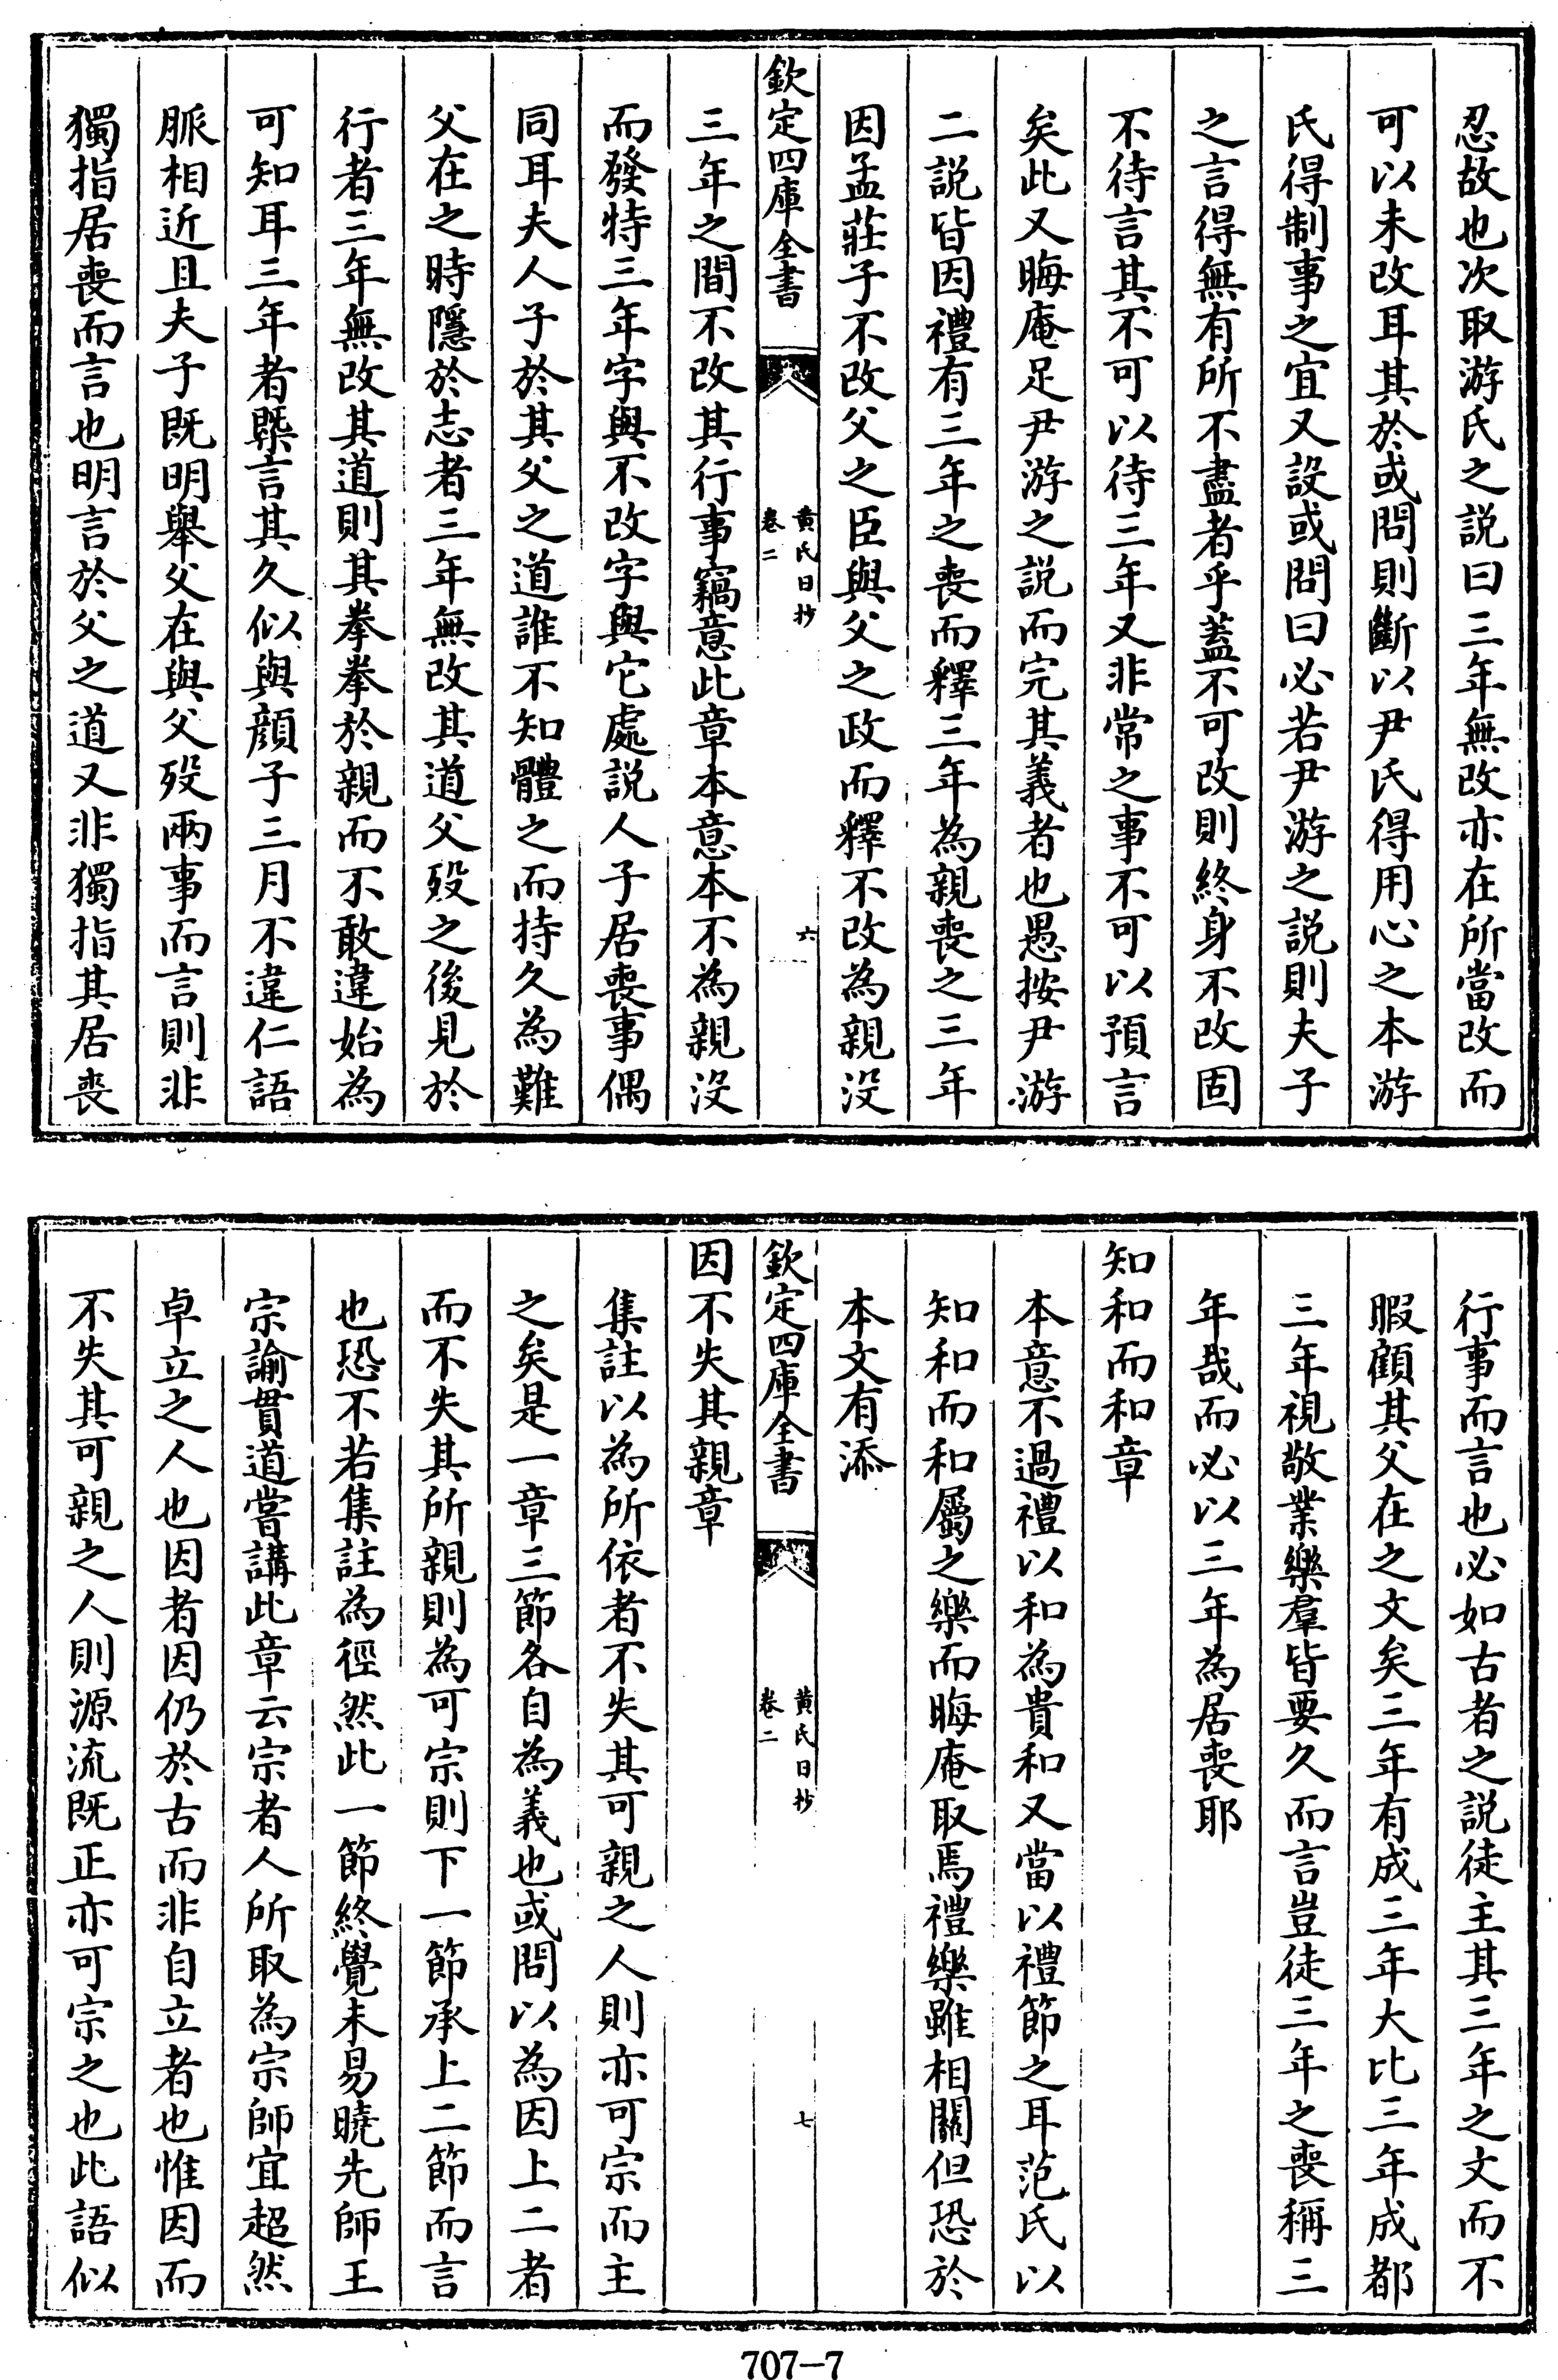 忍故也次取游氏之説曰三年無改亦在所當改而
可以未改耳其於或問則斷以尹氏得用心之本游
氏得制事之宜又設或問曰必若尹游之説則夫子
之言得無有所不盡者乎蓋不可改則終身不改固
不待言其不可以待三年又非常之事不可以預言
矣此又晦庵足尹游之説而完其義者也愚按尹游
二説皆因禮有三年之喪而釋三年為親喪之三年
因孟莊子不改父之臣與父之政而釋不改為親没
欽定四庫全書
黄氏日抄
卷二
六
三年之間不改其行事竊意此章本意本不為親没
而發特三年字與不改字與它處説人子居喪事偶
同耳夫人子於其父之道誰不知體之而持久為難
父在之時隱於志者三年無改其道父歿之後見於
行者三年無改其道則其拳拳於親而不敢違始為
可知耳三年者槩言其久似與顔子三月不違仁語
脈相近且夫子既明舉父在與父歿兩事而言則非
獨指居喪而言也明言於父之道又非獨指其居喪
行事而言也必如古者之説徒主其三年之文而不
暇顧其父在之文矣三年有成三年大比三年成都
三年視敬業樂羣皆要久而言豈徒三年之喪稱三
年哉而必以三年為居喪耶
知和而和章
本意不過禮以和為貴和又當以禮節之耳范氏以
知和而和屬之樂而晦庵取焉禮樂雖相關但恐於
本文有添
欽定四庫全書
黄氏日抄
卷二
七
因不失其親章
集註以為所依者不失其可親之人則亦可宗而主
之矣是一章三節各自為義也或問以為因上二者
而不失其所親則為可宗則下一節承上二節而言
也恐不若集註為徑然此一節終覺未易曉先師王
宗諭貫道嘗講此章云宗者人所取為宗師宜超然
卓立之人也因者因仍於古而非自立者也惟因而
不失其可親之人則源流既正亦可宗之也此語似
707-7